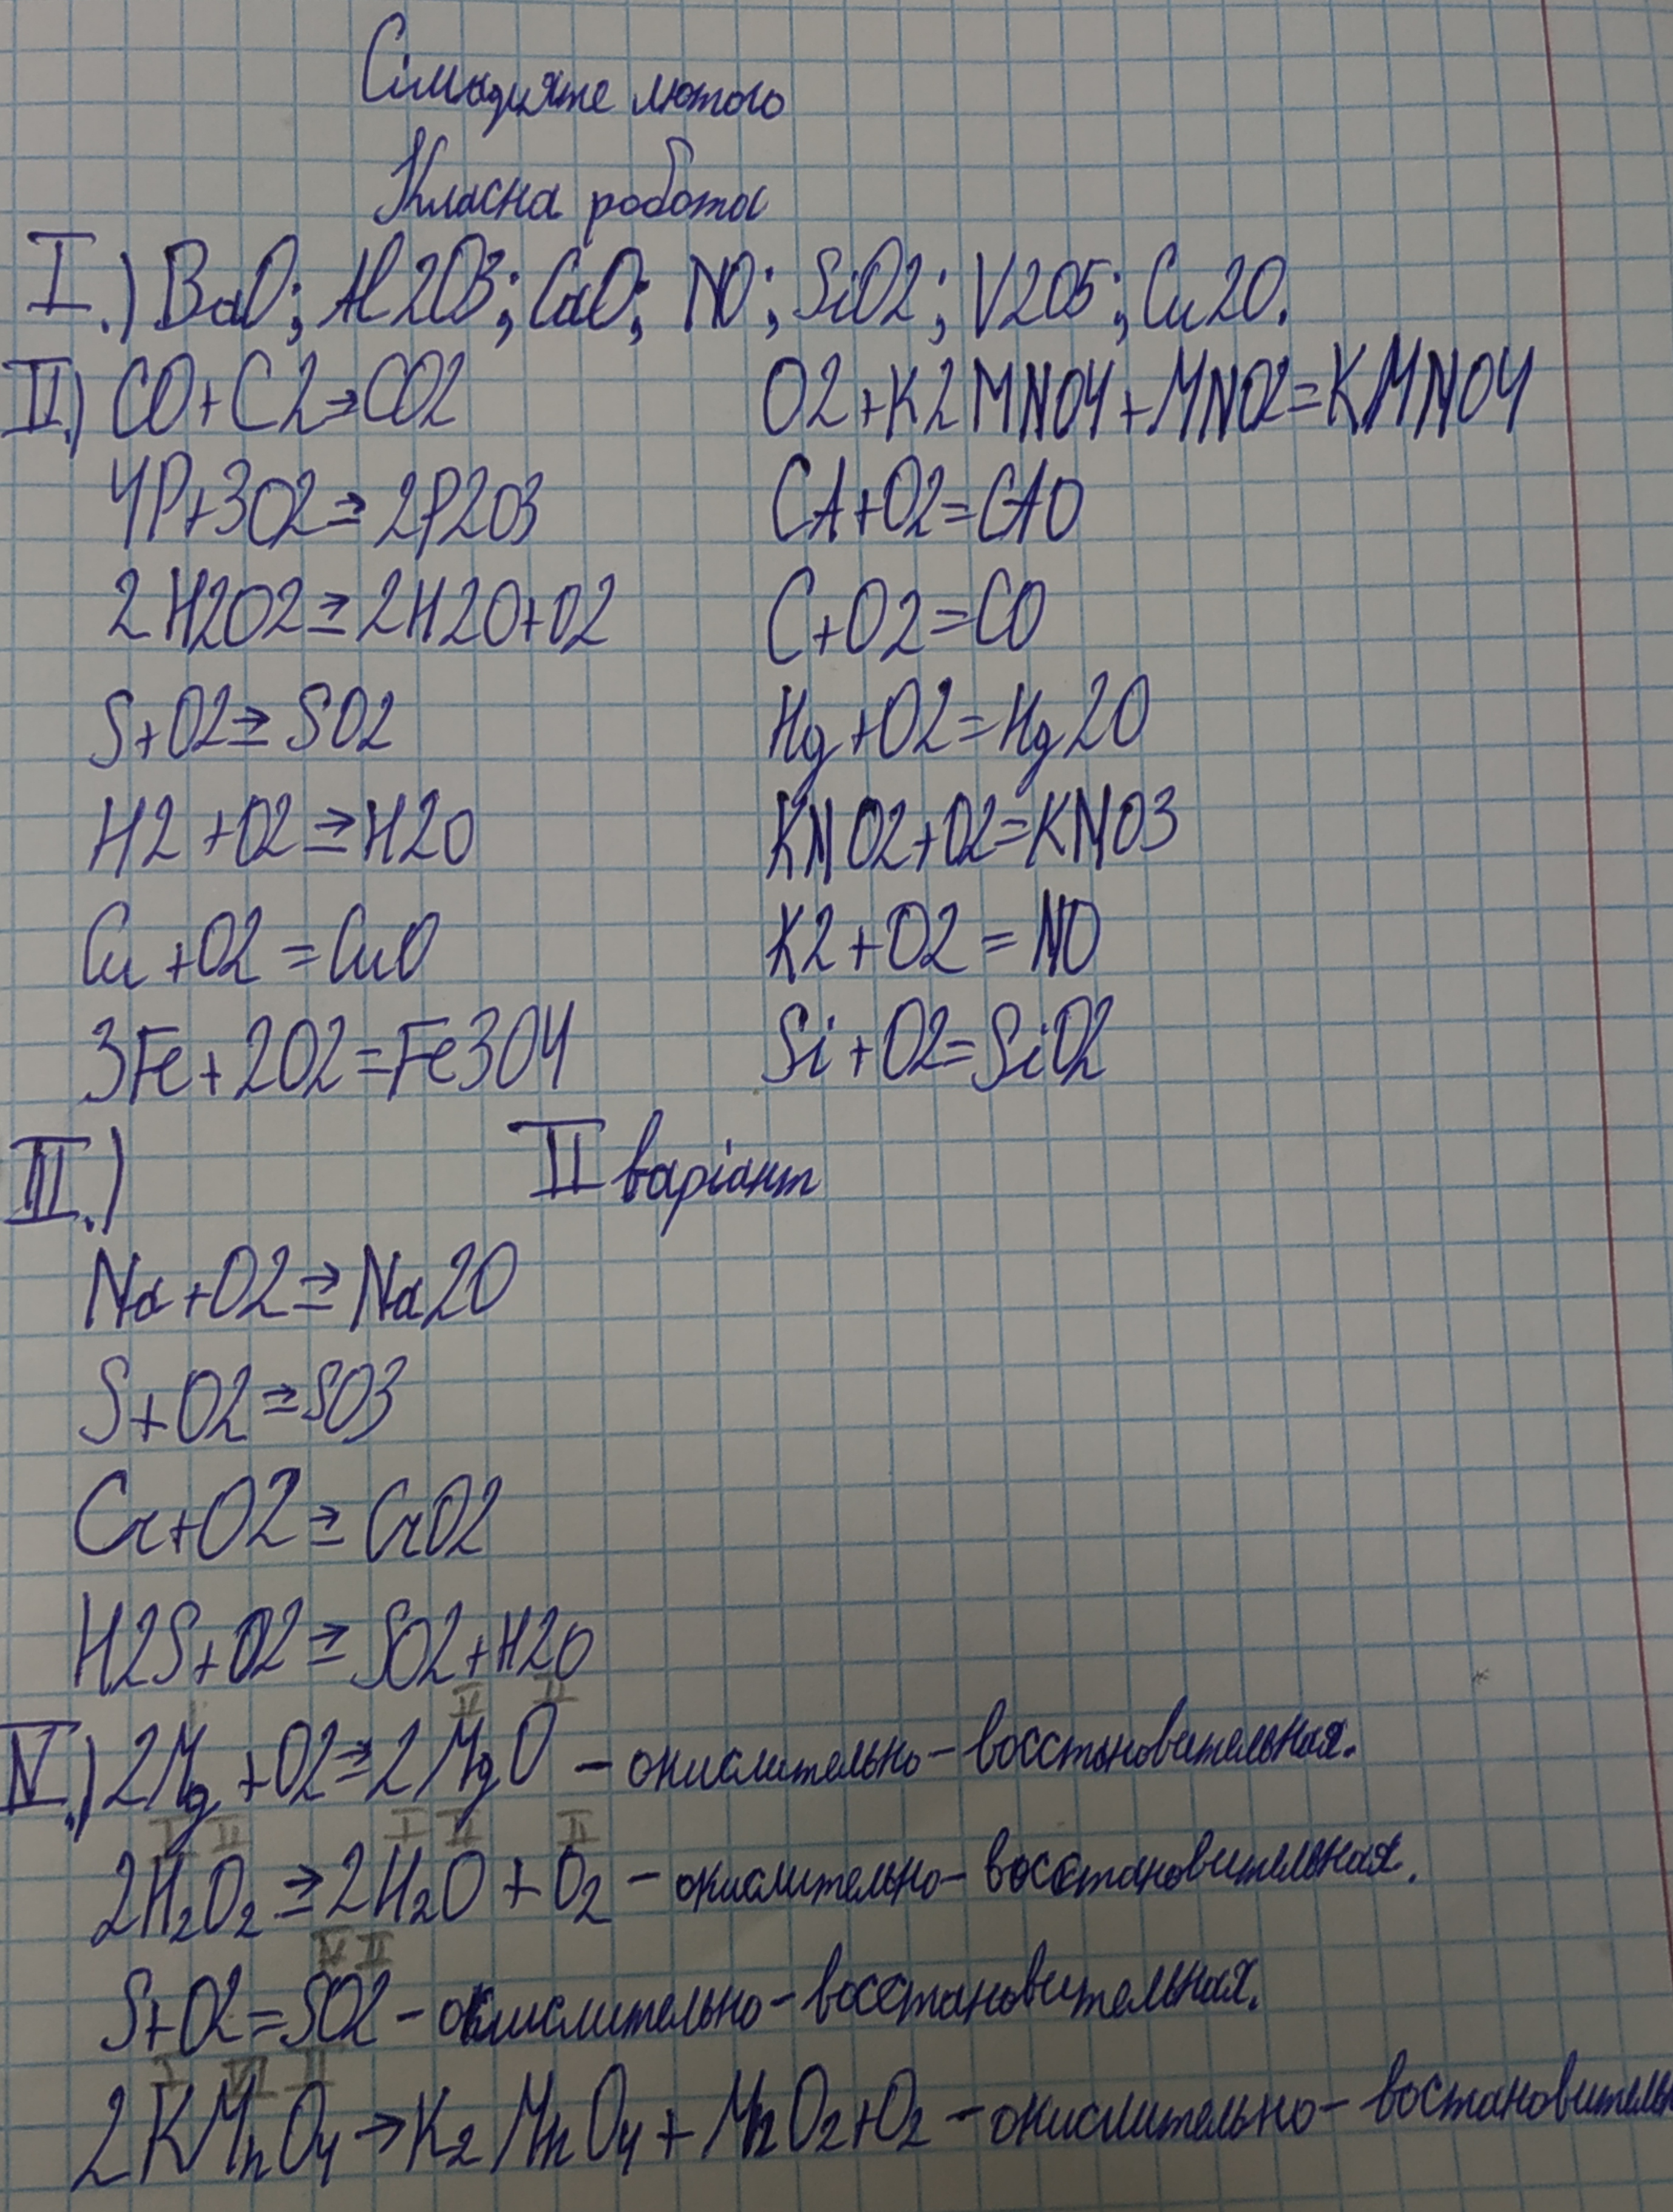 Сімнадцяте лютого
Класна робота
I.) BaO; Al2O3; CaO; NO; SiO2; V2O5; Cu2O.
II.) CO+C2⇒CO2
4P+3O2⇒2P2O3
2H2O2⇒2H2O+O2
S+O2⇒SO2
H2+O2⇒H2O
Cu+O2=CuO
3Fe+2O2=Fe3O4
O2+K2MNO4+MNO2=KMNO4
CA+O2=CAO
C+O2=CO
Hg+O2=Hg2O
KNO2+O2=KNO3
K2+O2=NO
Si+O2=SiO2
III.) II варіант
Na+O2⇒Na2O
S+O2⇒SO3
Cr+O2⇒CrO2
H2S+O2⇒SO2+H2O
II II
IV.) 2Mg+O2⇒2MgO – окислительно-восстановительная.
I II I II II
2H₂O₂⇒2H₂O+O₂ – окислительно-восстановительная.
IV II
S+O2=SO2 – окислительно-восстановительная.
I VI II
2KMnO₄→K₂MnO₄+MnO₂+O₂ – окислительно-востановительн